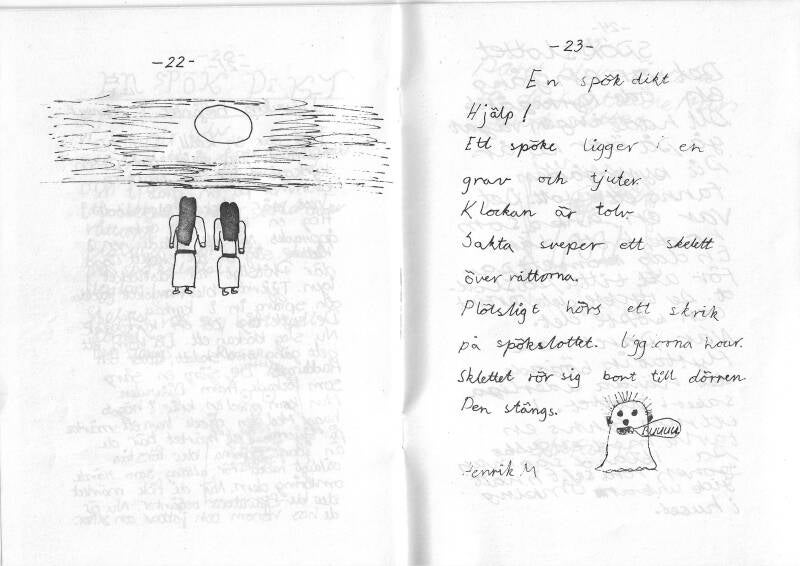 -22-
-23-
En spök dikt
Hjälp!
Ett spöke ligger i en
grav och tjuter.
Klockan är tolv
Sakta sveper ett skelett
över råttorna.
Plötsligt hörs ett skrik
på spökslottet.
Sklettet rör sig bort till dörren.
Den stängs.
Buuuu
Henrik M